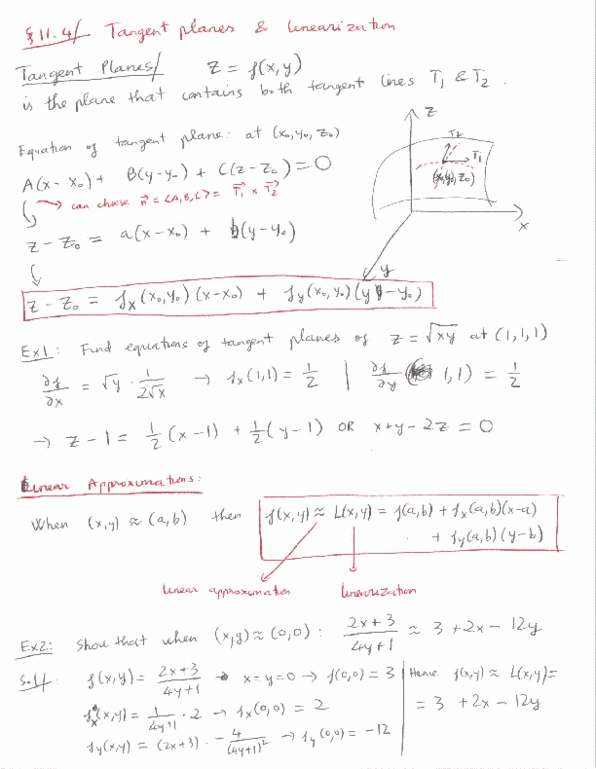 § 11.4/ Tangent planes & linearization
Tangent Planes/ z = f(x,y)
is the plane that contains both tangent lines T₁ & T₂.
Equation of tangent plane: at (x₀,y₀,z₀)
A(x-x₀) + B(y-y₀) + C(z-z₀) = 0
→ can choose n⃗ = <A,B,C> = T⃗₁ × T⃗₂
z - z₀ = a(x-x₀) + b(y-y₀)
z - z₀ = fₓ(x₀,y₀)(x-x₀) + f_y(x₀,y₀)(y-y₀)
z
T₂
T₁
(x₀,y₀,z₀)
x
y
Ex1: Find equations of tangent planes of z = √xy at (1,1,1)
∂f/∂x = √y · 1/(2√x) → fₓ(1,1) = 1/2 | ∂f/∂y (1,1) = 1/2
→ z - 1 = 1/2 (x-1) + 1/2 (y-1) OR x+y-2z = 0
Linear Approximations:
When (x,y) ≈ (a,b) then f(x,y) ≈ L(x,y) = f(a,b) + fₓ(a,b)(x-a)
+ f_y(a,b)(y-b)
linear approximation linearization
Ex2: Show that when (x,y) ≈ (0,0): (2x+3)/(4y+1) ≈ 3 + 2x - 12y
Sol/: f(x,y) = (2x+3)/(4y+1) → x=y=0 → f(0,0) = 3 | Hence f(x,y) ≈ L(x,y) =
fₓ(x,y) = 1/(4y+1) · 2 → fₓ(0,0) = 2 | = 3 + 2x - 12y
f_y(x,y) = (2x+3) · -4/(4y+1)² → f_y(0,0) = -12